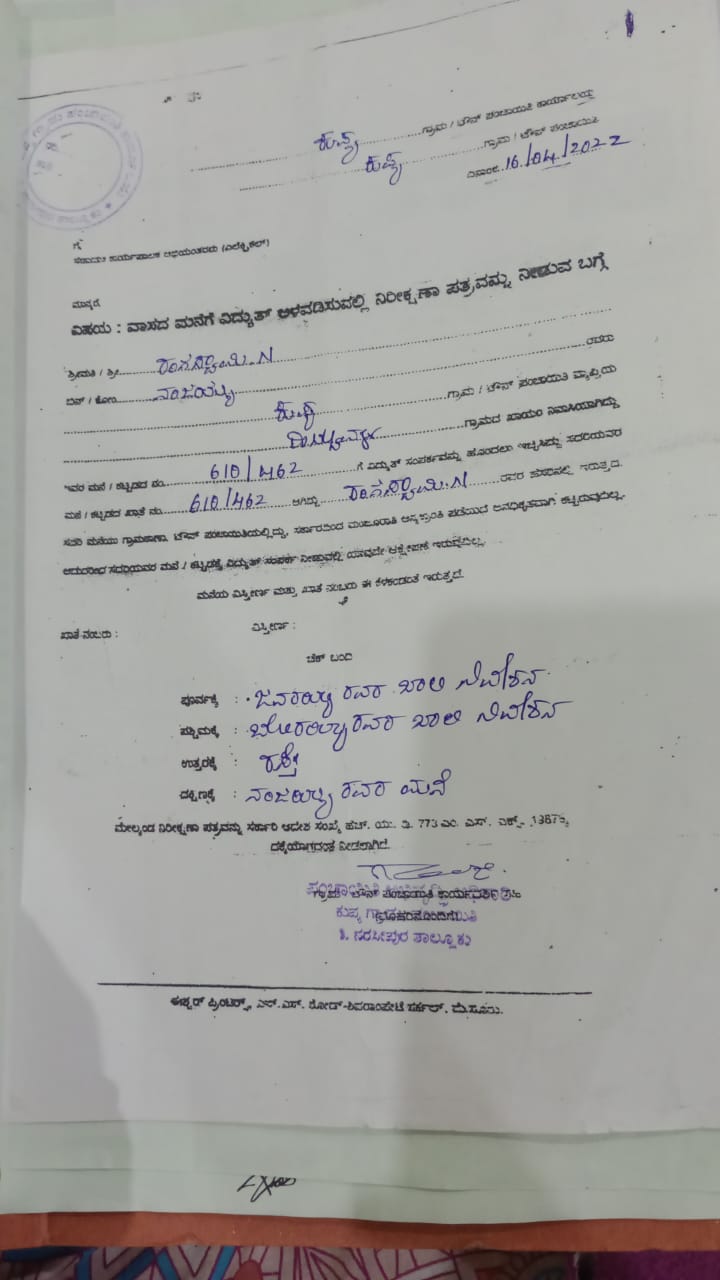 ಕುಪ್ಯ ಗ್ರಾಮ / ಟೌನ್ ಪಂಚಾಯಿತಿ ಕಾರ್ಯಾಲಯ
ಕುಪ್ಯ ಗ್ರಾಮ / ಟೌನ್ ಪಂಚಾಯಿತಿ
ದಿನಾಂಕ 16/04/2022
ಗೆ
ಸಹಾಯಕ ಕಾರ್ಯಪಾಲಕ ಅಭಿಯಂತರರು (ಎಲೆಕ್ಟ್ರಿಕಲ್)
ಮಾನ್ಯರೆ
ವಿಷಯ : ವಾಸದ ಮನೆಗೆ ವಿದ್ಯುತ್ ಅಳವಡಿಸುವಲ್ಲಿ ನಿರೀಕ್ಷಣಾ ಪತ್ರವನ್ನು ನೀಡುವ ಬಗ್ಗೆ
ಶ್ರೀಮತಿ / ಶ್ರೀ ರಂಗಸ್ವಾಮಿ.N
ಬಿನ್ / ಕೋಂ ನಂಜಯ್ಯ ರವರು
ಕುಪ್ಯ ಗ್ರಾಮ / ಟೌನ್ ಪಂಚಾಯಿತಿ ವ್ಯಾಪ್ತಿಯ
ಗ್ರಾಮದ ಖಾಯಂ ನಿವಾಸಿಯಾಗಿದ್ದು
ಇವರ ಮನೆ / ಕಟ್ಟಡದ ನಂ. 610/462 ಗೆ ವಿದ್ಯುತ್ ಸಂಪರ್ಕವನ್ನು ಹೊಂದಲು ಇಚ್ಛಿಸಿದ್ದು ಸದರಿಯವರ
ಮನೆ / ಕಟ್ಟಡದ ಖಾತೆ ನಂ. 610/462 ಆಗಿದ್ದು ರಂಗಸ್ವಾಮಿ.N ರವರ ಹೆಸರಿನಲ್ಲಿ ಇರುತ್ತದೆ.
ಸದರಿ ಮನೆಯು ಗ್ರಾಮಠಾಣಾ, ಟೌನ್ ಪಂಚಾಯಿತಿಯಲ್ಲಿದ್ದು, ಸರ್ಕಾರದಿಂದ ಮಂಜೂರಾತಿ ಪಡೆಯದೆ ಅನಧಿಕೃತವಾಗಿ ಕಟ್ಟಿರುವುದಿಲ್ಲ.
ಆದುದರಿಂದ ಸದರಿಯವರ ಮನೆ / ಕಟ್ಟಡಕ್ಕೆ ವಿದ್ಯುತ್ ಸಂಪರ್ಕ ನೀಡುವಲ್ಲಿ ಯಾವುದೇ ಆಕ್ಷೇಪಣೆ ಇರುವುದಿಲ್ಲ.
ಮನೆಯ ವಿಸ್ತೀರ್ಣ ಮತ್ತು ಖಾತೆ ನಂಬರು ಈ ಕೆಳಕಂಡಂತೆ ಇರುತ್ತದೆ.
ಖಾತೆ ನಂಬರು : ವಿಸ್ತೀರ್ಣ :
ಚೆಕ್ ಬಂದಿ
ಪೂರ್ವಕ್ಕೆ : ಜವರಯ್ಯ ರವರ ಖಾಲಿ ನಿವೇಶನ
ಪಶ್ಚಿಮಕ್ಕೆ : ಬೋರಯ್ಯ ರವರ ಖಾಲಿ ನಿವೇಶನ
ಉತ್ತರಕ್ಕೆ : ರಸ್ತೆ
ದಕ್ಷಿಣಕ್ಕೆ : ನಂಜಯ್ಯ ರವರ ಮನೆ
ಮೇಲ್ಕಂಡ ನಿರೀಕ್ಷಣಾ ಪತ್ರವನ್ನು ಸರ್ಕಾರಿ ಆದೇಶ ಸಂಖ್ಯೆ ಹೆಚ್. ಯು. ಡಿ. 773 ಎಂ. ಎಸ್. ಎಕ್ಸ್.
ನೀಡಲಾಗಿದೆ.
ಗ್ರಾಮ / ಟೌನ್ ಪಂಚಾಯಿತಿ ಕಾರ್ಯದರ್ಶಿ ಸಹಿ
ಮೊಹರಿನೊಂದಿಗೆ
ಟಿ. ನರಸೀಪುರ ತಾಲ್ಲೂಕು
ಈಶ್ವರ್ ಪ್ರಿಂಟರ್ಸ್, ಎನ್.ಎಸ್. ರೋಡ್-ಶಿವರಾಂಪೇಟೆ ಸರ್ಕಲ್, ಮೈಸೂರು.